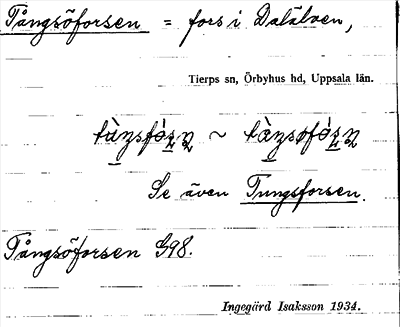 Tångsöforsen = fors i Dalälven,
Tierps sn, Örbyhus hd, Uppsala län.
~
Se även Tungsforsen.
Tångsöforsen G98.
Ingegärd Isaksson 1934.